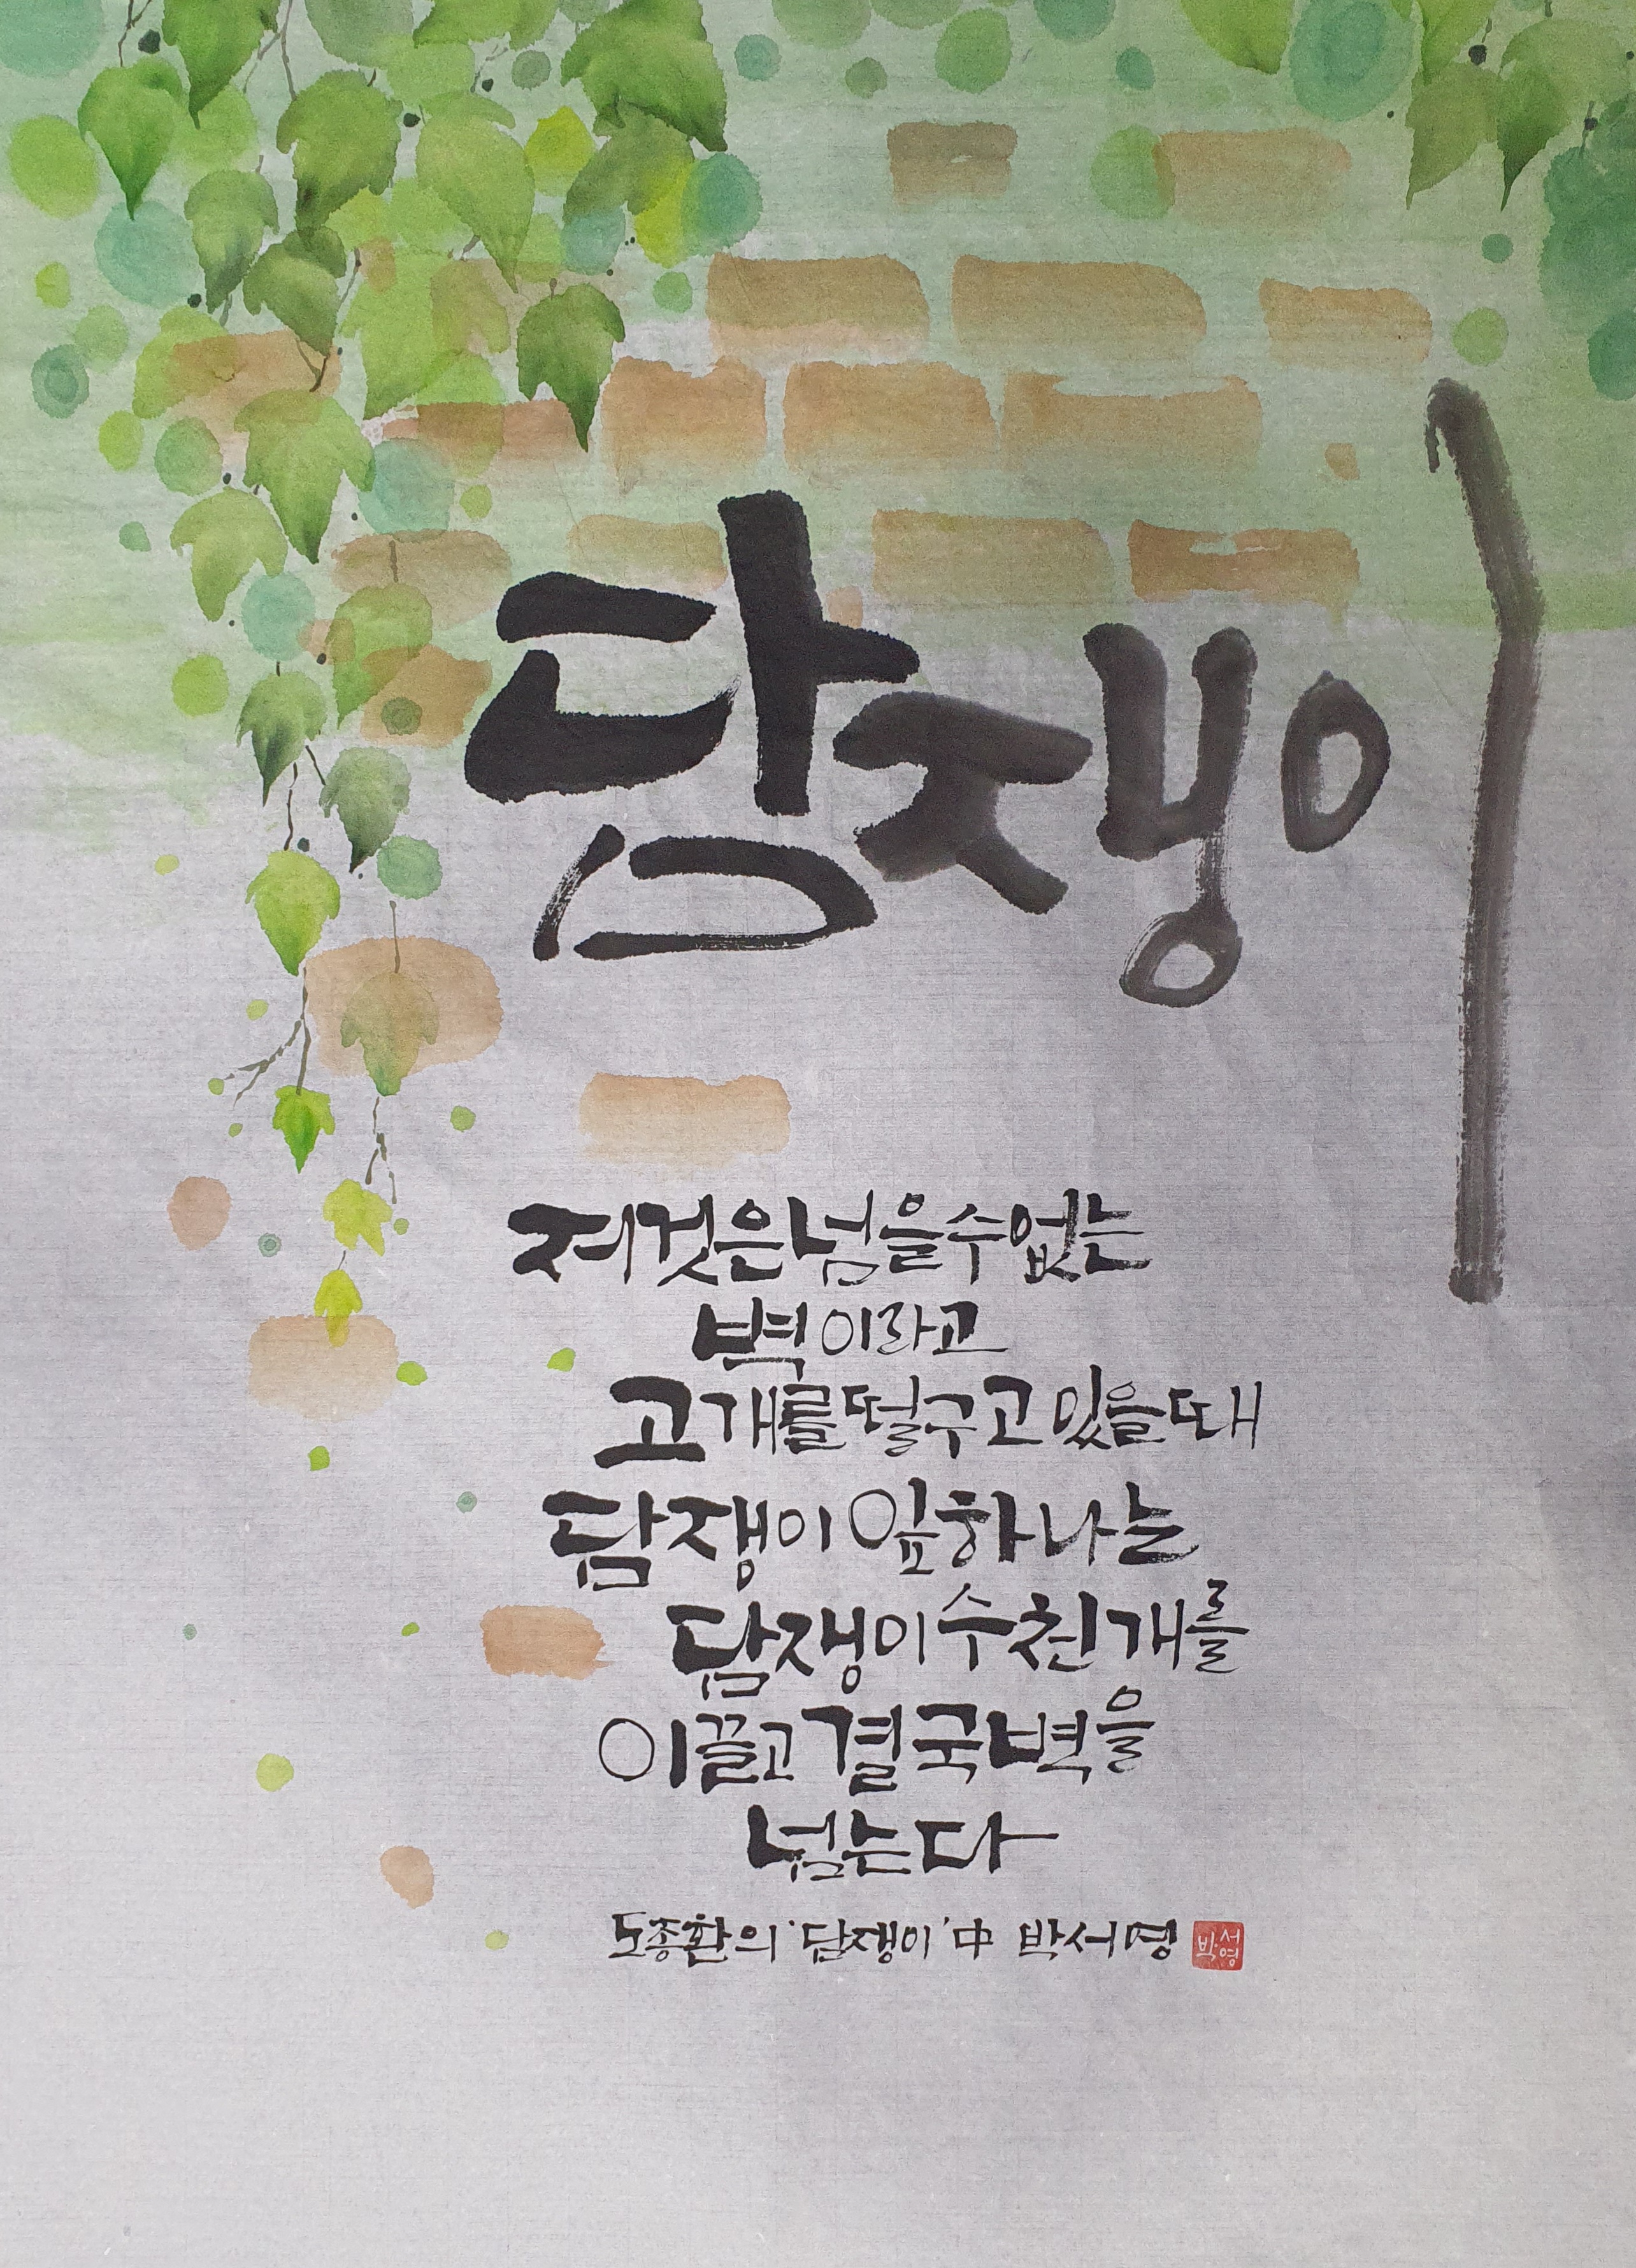 담쟁이
저것은 넘을 수 없는
벽이라고
고개를 떨구고 있을 때
담쟁이 잎 하나는
담쟁이 수천 개를
이끌고 결국 벽을
넘는다
도종환의 '담쟁이' 中 박서영
박서영